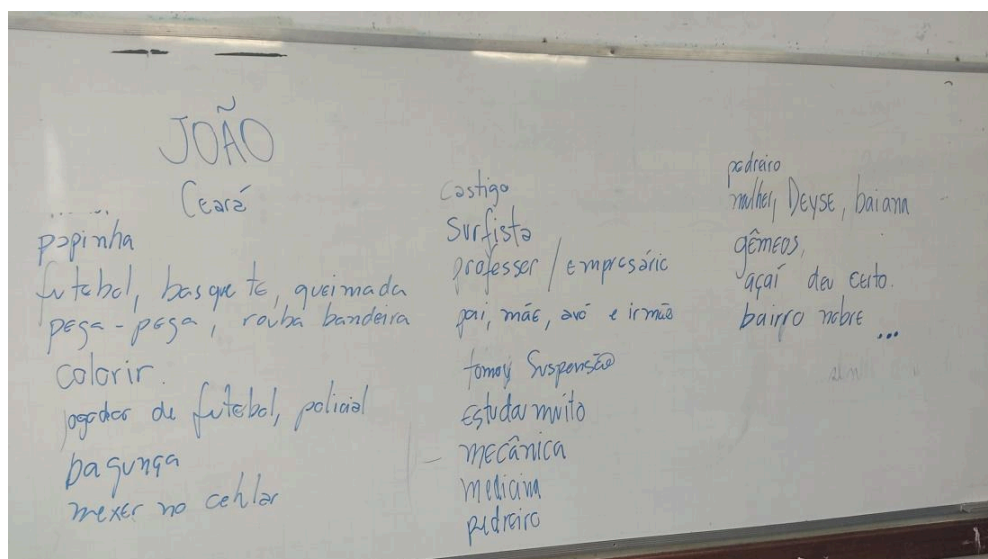 JOÃO
Ceará
papinha
futebol, basquete, queimada
pega-pega, rouba bandeira
colorir.
jogador de futebol, policial
bagunça
mexer no cehlar
castigo
Surfista
professor / empresário
pai, mãe, avó e irmão
tomou suspensão
estudar muito
mecânica
medicina
pedreiro
pedreiro
mulher, Deyse, baiana
gêmeos,
açaí deu certo.
bairro nobre ...